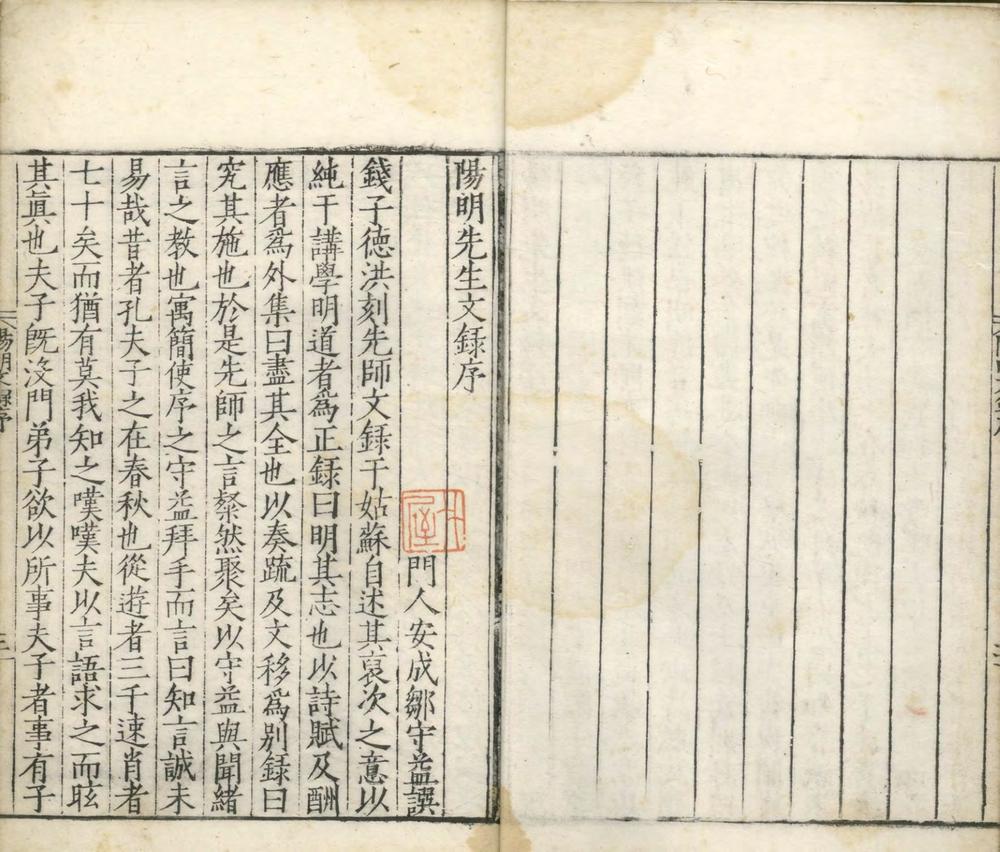 陽明先生文録序
門人安成鄒守益譔
錢子德洪刻先師文録于姑蘇自述其裒次之意以
純于講學明道者爲正録曰明其志也以詩賦及酬
應者爲外集曰盡其全也以奏疏及文移爲別録曰
究其施也於是先師之言粲然聚矣以守益與聞緒
言之教也寓簡使序之守益拜手而言曰知言誠未
易哉昔者孔夫子之在春秋也從遊者三千速肖者
七十矣而猶有莫我知之嘆嘆夫以言語求之而昡
其眞也夫子旣沒門弟子欲以所事夫子者事有子
陽明文録序